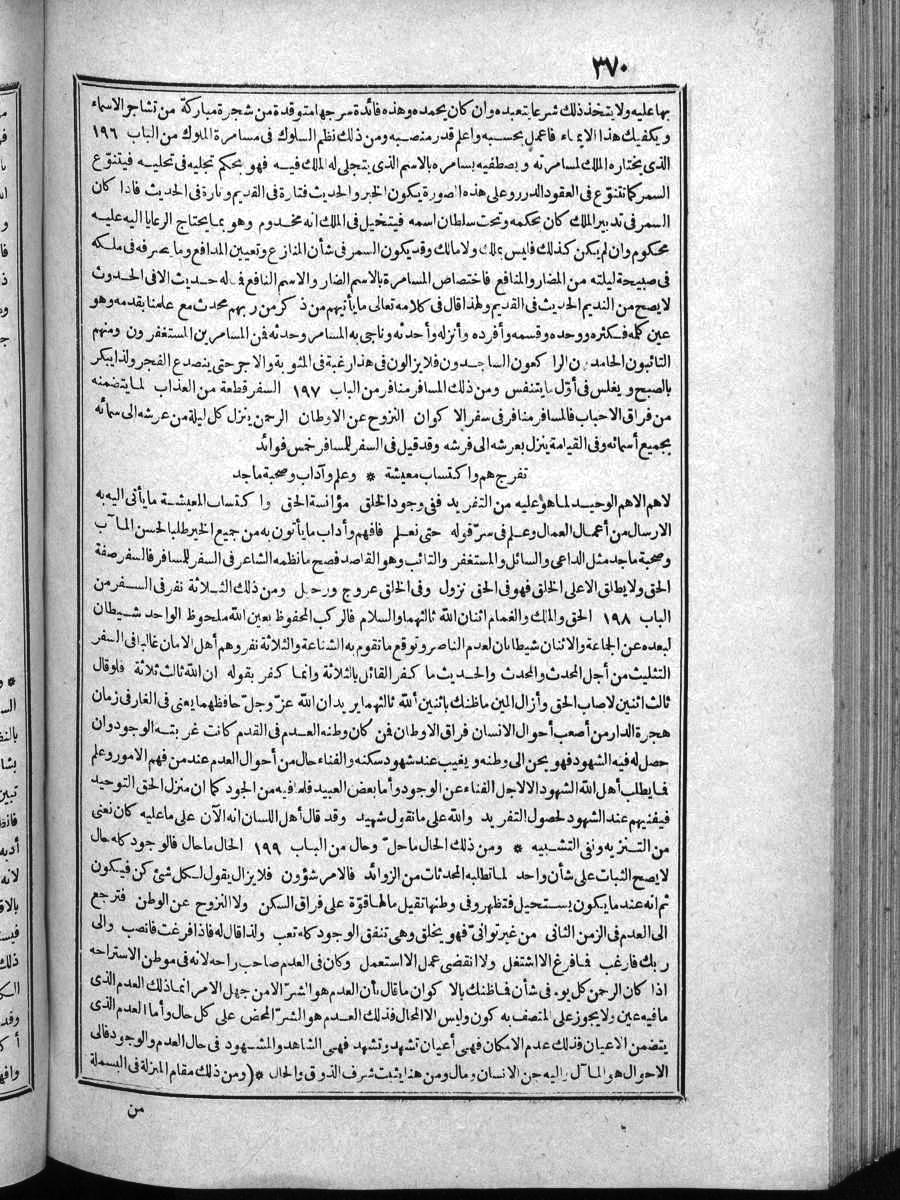 ٣٧٠
بها عليه ولا يتخذ ذلك شرعا يتعبده وان كان يحمده وهذه فائدة سرجها متوقدة من شجرة مباركة من تشاجر الاسماء
ويكفيك هذا الايماء فاعمل بحسبه واعلم قدر منصبه ومن ذلك نظم السلوك فى مسامرة الملوك من الباب ١٩٦
الذى يختاره الملك لمسامرته ويصطفيه يسامره بالاسم الذى يتجلى له الملك فيه فهو بحكم تجليه فى تحليه فيتنوّع
السمر كما تتنوّع فى العقود الدرر وعلى هذه الصورة يكون الخبر والحديث فتارة فى القديم وتارة فى الحديث فاذا كان
السمر فى تدبير الملك كان بحكمه وتحت سلطان اسمه فيتخيل فى الملك انه مخدوم وهو بما يحتاج الرعايا اليه عليه
محكوم وان لم يكن كذلك فليس بملك ولا مالك وقد يكون السمر فى شأن المنازع وتعيين المدافع وما يصرفه فى ملكه
فى صبيحة ليلته من المضار والمنافع فاختصاص المسامرة بالاسم الضار والاسم النافع فى له حديث الا فى الحدوث
لا يصح من النديم الحديث فى القديم ولهذا قال فى كلامه تعالى ما يأتيهم من ذكر من ربهم محدث مع علمنا بقدمه وهو
عين كله فكثره ووحده وقسمه وأفرده وأنزله وأحدثه وناجى به المسامر وحدثه فمن المسامرين المستغفرون ومنهم
التائبون الحامدون الراكعون الساجدون فلا يزالون فى هذا رغبة فى المثوبة والاجر حتى ينصدع الفجر ولذا يبكر
بالصبح ويغلس فى أوّل ما يتنفس ومن ذلك المسافر منافر من الباب ١٩٧ السفر قطعة من العذاب لما يتضمنه
من فراق الاحباب فالمسافر منافر فى سفر الاكوان النزوح عن الاوطان الرحمن ينزل كل ليلة من عرشه الى سمائه
بجميع أسمائه وفى القيامة ينزل بعرشه الى فرشه وقد قيل فى السفر للمسافر خمس فوائد
تفرج هم واكتساب معيشة * وعلم وآداب وصحبة ماجد
لاهم الا هم الوحيد لما هو عليه من التفريد ففى وجود الخلق مؤانسة الحق واكتساب المعيشة ما يأتى اليه به
الارسال من أعمال العمال وعلم فى سرّ قوله حتى نعلم فافهم وأداب ما يأتون به من جميع الخبر طلبا لحسن المآب
وصحبة ماجد مثل الداعى والسائل والمستغفر والتائب وهو القاصد فصح ما نظمه الشاعر فى السفر للمسافر فالسفر صفة
الحق ولا يطلق الا على الخلق فهو فى الحق نزول وفى الخلق عروج ورحيل ومن ذلك الثلاثة نفر فى السفر من
الباب ١٩٨ الحق والملك والغمام اثنان الله ثالثهما والسلام فالركب المحفوظ بعين الله ملحوظ الواحد شيطان
لبعده عن الجماعة والاثنان شيطانان لعدم الناصر وتوقع ما تقوم به الشناعة والثلاثة نفر وهم أهل الامان غالبا فى السفر
التثليث من أجل المحدث والمحدث والحديث ما كفر القائل بالثلاثة وانما كفر بقوله ان الله ثالث ثلاثة فلو قال
ثالث اثنين لاصاب الحق وأزال المين ما ظنك باثنين ألله ثالثهما يريد ان الله عزّ وجلّ حافظهما يعنى فى الغار فى زمان
هجرة الدار من أصعب أحوال الانسان فراق الاوطان فمن كان وطنه العدم فى القدم كانت غربته الوجود وان
حصل له فيه الشهود فهو يحن الى وطنه ويغيب عند شهود سكنه والفناء حال من أحوال العدم عند من فهم الامور وعلم
فما يطلب أهل الله الشهود الا لاجل الفناء عن الوجود وأما بعض العبيد فلما فيه من الجود كما ان منزل الحق التوحيد
فيفنيهم عند الشهود لحصول التفريد والله على ما نقول شهيد وقد قال أهل اللسان انه الآن على ما عليه كان نعنى
من التنزيه ونفى التشبيه * ومن ذلك الحال ما حلّ وحال من الباب ١٩٩ الحال ما حال فالوجود كله حال
لا يصح الثبات على شأن واحد لما تطلبه المحدثات من الزوائد فالامر شؤون فلا يزال يقول لكل شئ كن فيكون
ثم انه عند ما يكون يستحيل فتظهر وفى وطنها تقيل ما لها قوّة على فراق السكن ولا النزوح عن الوطن فترجع
الى العدم فى الزمن الثانى من غير توانى فهو يخلق وهى تنفق الوجود كله تعب ولذا قال له فاذا فرغت فانصب والى
ربك فارغب فما فرغ الا اشتغل ولا انقضى عمل الا استعمل وكان فى العدم صاحب راحه لانه فى موطن الاستراحه
اذا كان الرحمن كل يوم فى شأن فما ظنك بالاكوان ما قال بأن العدم هو الشرّ الا من جهل الامر انما ذلك العدم الذى
ما فيه عين ولا يجوز على المتصف به كون وليس الا المحال فذلك العدم هو الشرّ المحض على كل حال وأما العدم الذى
يتضمن الاعيان فذلك عدم الامكان فهى أعيان تشهد وتشهد فهى الشاهد والمشهود فى حال العدم والوجود فالى
الاحوال هو المآل واليه حن الانسان ومال ومن هنا يثبت شرف الذوق والحال * (ومن ذلك مقام المنزلة فى البسملة
من